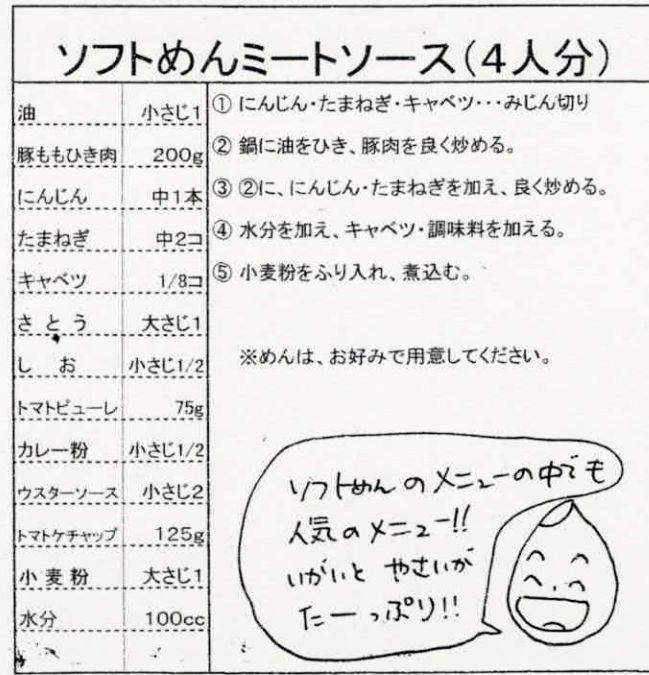 ソフトめんミートソース(4人分)
油 小さじ1
豚ももひき肉 200g
にんじん 中1本
たまねぎ 中2コ
キャベツ 1/8コ
さとう 大さじ1
しお 小さじ1/2
トマトピューレ 75g
カレー粉 小さじ1/2
ウスターソース 小さじ2
トマトケチャップ 125g
小麦粉 大さじ1
水分 100cc
① にんじん・たまねぎ・キャベツ・・・みじん切り
② 鍋に油をひき、豚肉を良く炒める。
③ ②に、にんじん・たまねぎを加え、良く炒める。
④ 水分を加え、キャベツ・調味料を加える。
⑤ 小麦粉をふり入れ、煮込む。
※めんは、お好みで用意してください。
ソフトめんのメニューの中でも
人気のメニュー!!
いがいと やさいが
たーっぷり!!